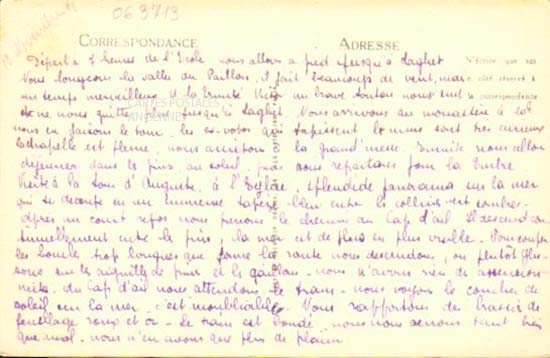 063713
CORRESPONDANCE
ADRESSE
Départ à 7 heures de l'Escole nous allons à pied jusqu'à Laghet
Nous longeons la vallée du Paillon, il fait beaucoup de vent, mais
un temps merveilleux. A la Trinité Victor un brave toutou nous suit
et ne nous quitte jusqu'à Laghet. Nous arrivons au monastère
nous en faisons le tour. les ex-votos qui tapissent les murs sont très curieux
La chapelle est pleine, nous assistons à la grand'messe. Ensuite nous allons
déjeuner dans les pins, au soleil, puis nous repartons pour la Turbie
Visite à la Tour d'Auguste, à l'Eglise, splendide panorama sur la mer
qui se découpe en un immense tapis bleu entre les collines
Après un court repos nous prenons le chemin du Cap d'ail. Il descend con-
tinuellement entre les pins, la mer est de plus en plus visible. Pour couper
les boucles trop longues que forme la route nous descendons, ou plutôt glis-
sons sur les aiguilles de pins et le gazon. nous n'avons rien de
Au Cap d'ail nous attendons le train. nous voyons le coucher de
soleil sur la mer. c'est inoubliable. Nous rapportons des brassées de
feuillage roux et or. Le train est bondé, nous nous serrons tant bien
que mal. nous n'en avons que plus de plaisir
CARTES POSTALES
ANCIENNES